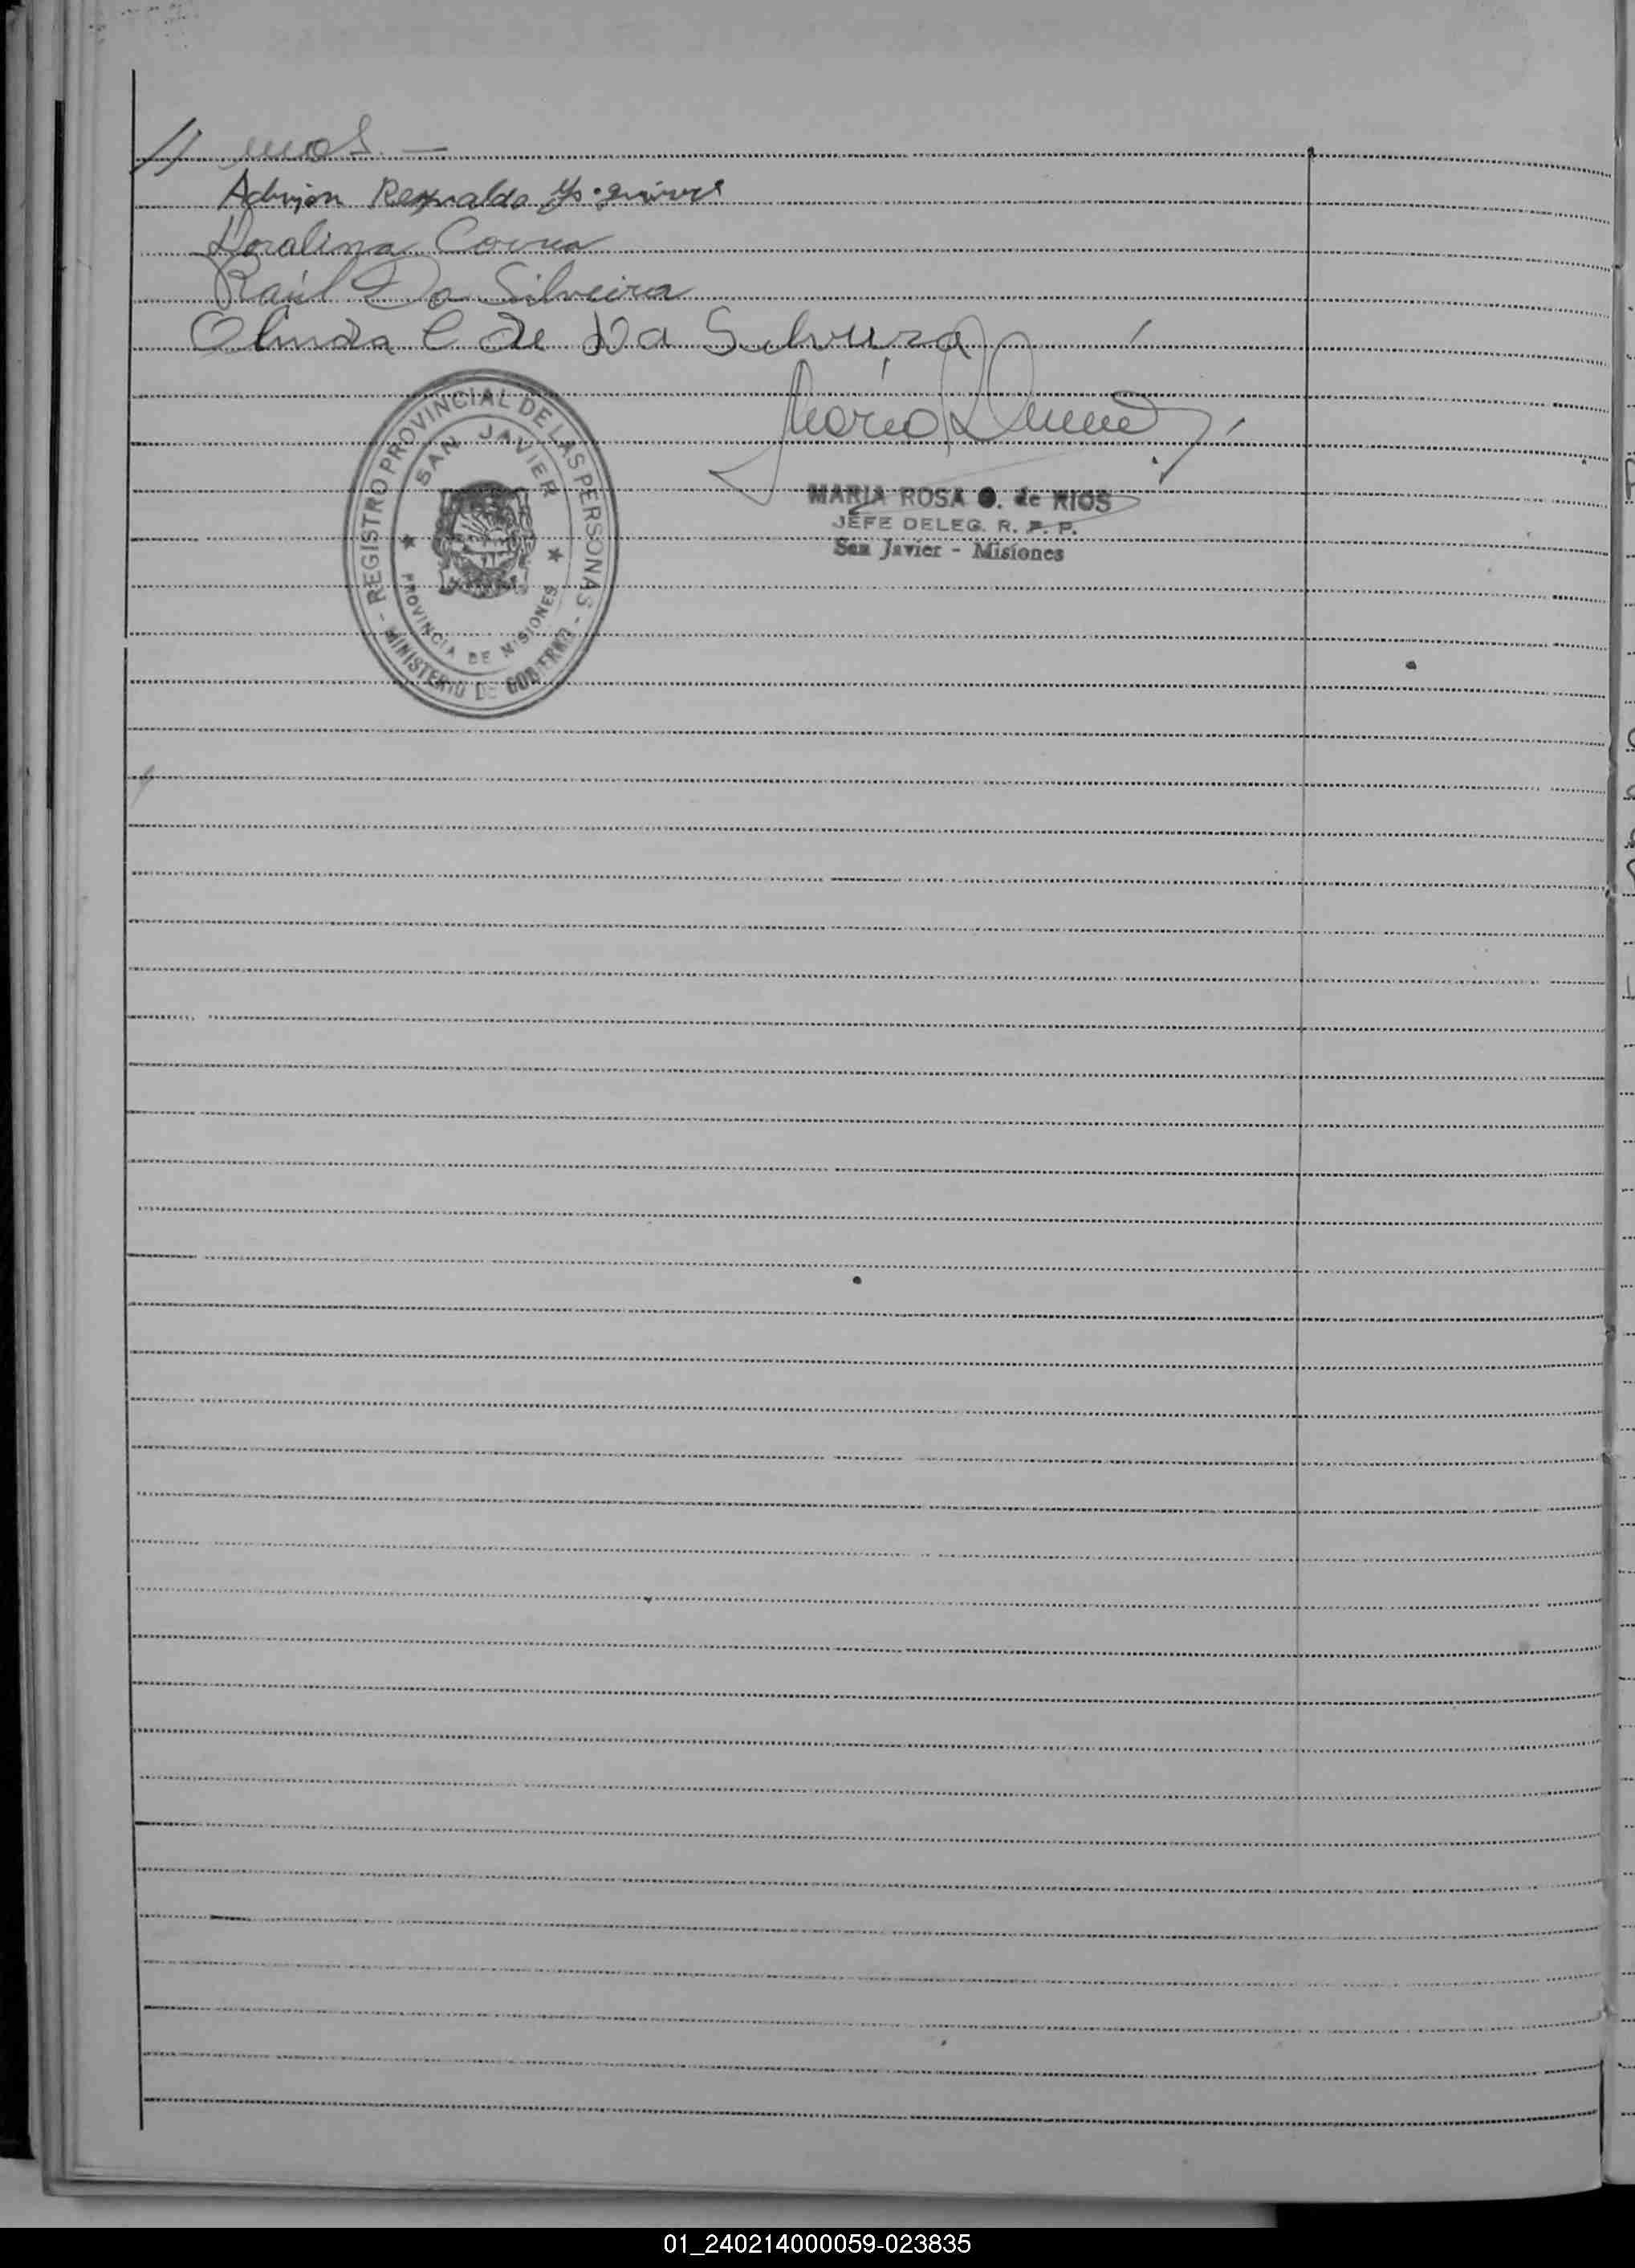 // mos. —
Adrian Reynaldo
Doralina Correa
Raúl Da Silveira
Olinda C de Da Silveira
REGISTRO PROVINCIAL DE LAS PERSONAS
SAN JAVIER
PROVINCIA DE MISIONES
- MINISTERIO DE GOBIERNO -
MARIA ROSA de RIOS
JEFE DELEG. R. P. P.
San Javier - Misiones
01_240214000059-023835